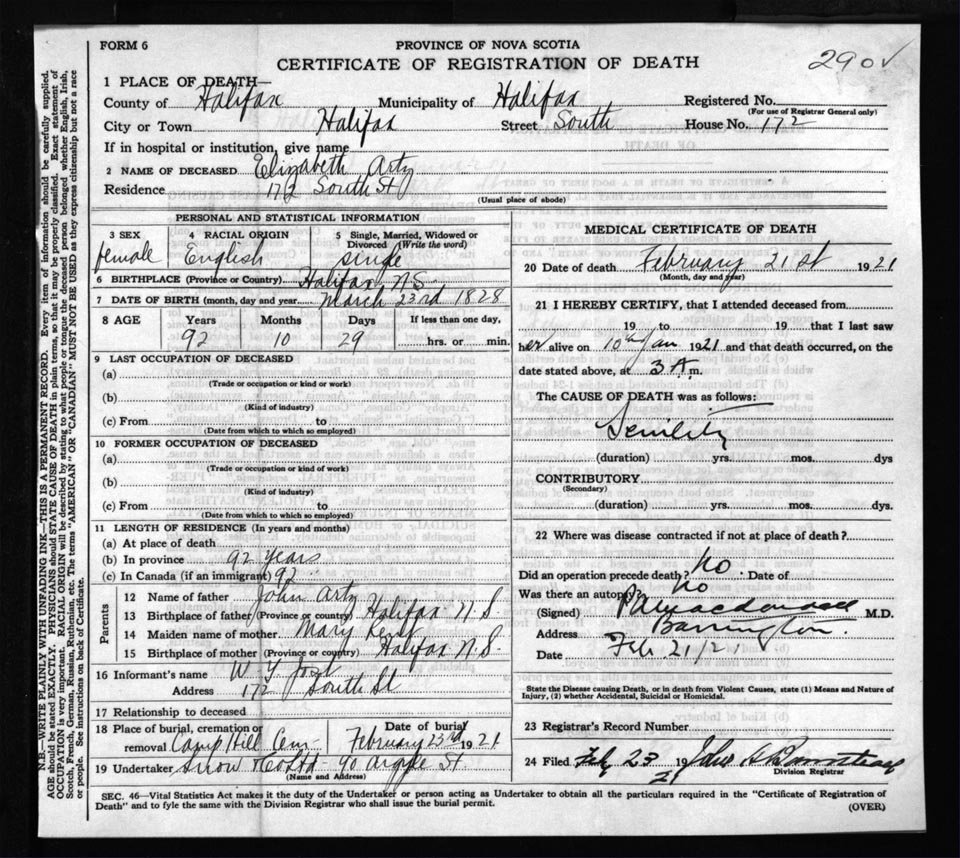 FORM 6
PROVINCE OF NOVA SCOTIA
CERTIFICATE OF REGISTRATION OF DEATH
290 v
1 PLACE OF DEATH—
County of Halifax Municipality of Halifax Registered No.
(For use of Registrar General only)
City or Town Halifax Street South House No. 172
If in hospital or institution, give name
2 NAME OF DECEASED Elizabeth Artz
Residence 172 South St
(Usual place of abode)
PERSONAL AND STATISTICAL INFORMATION
3 SEX 4 RACIAL ORIGIN 5 Single, Married, Widowed or Divorced (Write the word)
female English single
6 BIRTHPLACE (Province or Country) Halifax N.S.
7 DATE OF BIRTH (month, day and year) March 23rd 1828
8 AGE Years Months Days If less than one day,
92 10 29 hrs. or min.
9 LAST OCCUPATION OF DECEASED
(a)
(Trade or occupation or kind of work)
(b)
(Kind of industry)
(c) From to
(Date from which to which so employed)
10 FORMER OCCUPATION OF DECEASED
(a)
(Trade or occupation or kind of work)
(b)
(Kind of industry)
(c) From to
(Date from which to which so employed)
11 LENGTH OF RESIDENCE (In years and months)
(a) At place of death
(b) In province 92 years
(c) In Canada (if an immigrant) 92
Parents
12 Name of father John Artz
13 Birthplace of father (Province or country) Halifax N S
14 Maiden name of mother Mary
15 Birthplace of mother (Province or country) Halifax N.S.
16 Informant's name W Y Jost
Address 172 South St
17 Relationship to deceased
18 Place of burial, cremation or removal Camp Hill Cem Date of burial February 23rd 1921
19 Undertaker Snow & Co Ltd 90 Argyle St
(Name and Address)
MEDICAL CERTIFICATE OF DEATH
20 Date of death February 21st 1921
(Month, day and year)
21 I HEREBY CERTIFY, that I attended deceased from
19 to 19 that I last saw
her alive on 10th Jan 1921 and that death occurred, on the
date stated above, at 3 A. m.
The CAUSE OF DEATH was as follows:
Senility
(duration) yrs. mos. dys
CONTRIBUTORY
(Secondary)
(duration) yrs. mos. dys.
22 Where was disease contracted if not at place of death?
Did an operation precede death? No Date of
Was there an autopsy? No
(Signed) M.D.
Address Barrington
Date Feb 21/21
State the Disease causing Death, or in death from Violent Causes, state (1) Means and Nature of Injury, (2) whether Accidental, Suicidal or Homicidal.
23 Registrar's Record Number
24 Filed Feb 23 19 2 John
Division Registrar
SEC. 46—Vital Statistics Act makes it the duty of the Undertaker or person acting as Undertaker to obtain all the particulars required in the "Certificate of Registration of
Death" and to fyle the same with the Division Registrar who shall issue the burial permit.
(OVER)
N.B.—WRITE PLAINLY WITH UNFADING INK—THIS IS A PERMANENT RECORD. Every item of information should be carefully supplied.
AGE should be stated EXACTLY. PHYSICIANS should STATE CAUSE OF DEATH in plain terms, so that it may be properly classified. Exact statement of
OCCUPATION is very important. RACIAL ORIGIN will be described by stating to what people or tongue the deceased person belonged whether English, Irish,
Scotch, French, German, Russian, Ruthenian, etc. The terms "AMERICAN" OR "CANADIAN" MUST NOT BE USED as they express citizenship but not a race
or people. See instructions on back of Certificate.